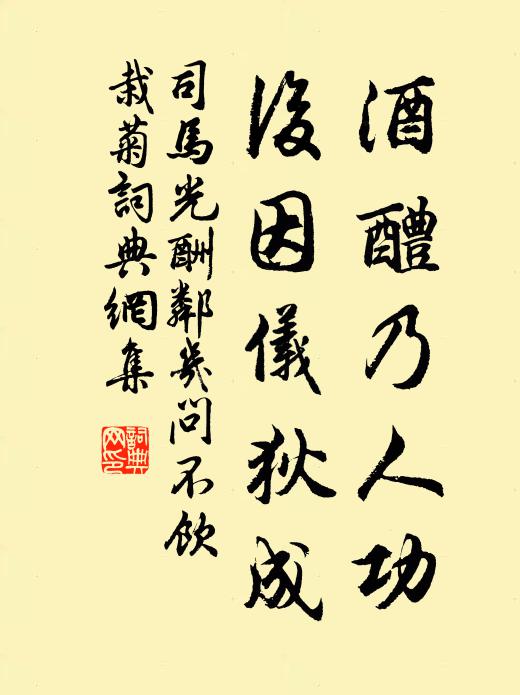 酒醴乃人功
後因儀狄成
司馬光酬鄰幾問不飲
栽菊詞典網集
詞典網印